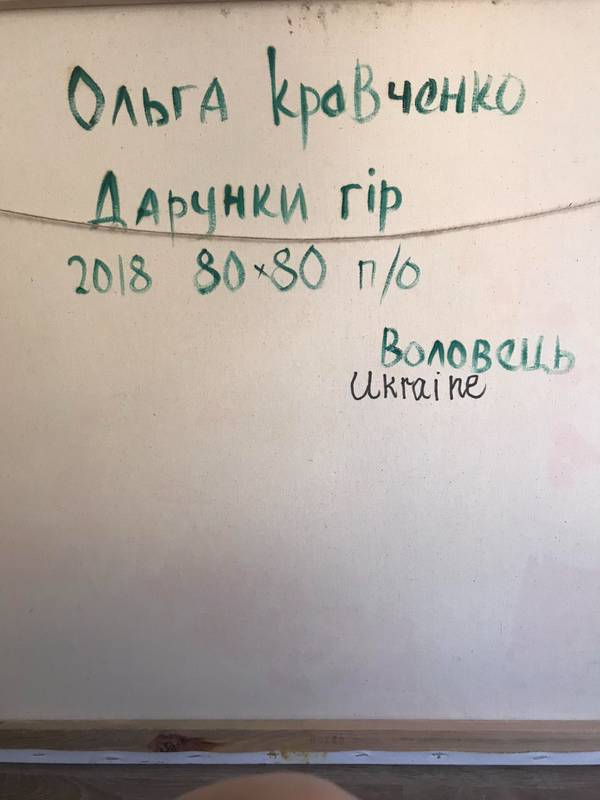 Ольга Кравченко
Дарунки гір
2018 80×80 п/о
Воловець
Ukraine